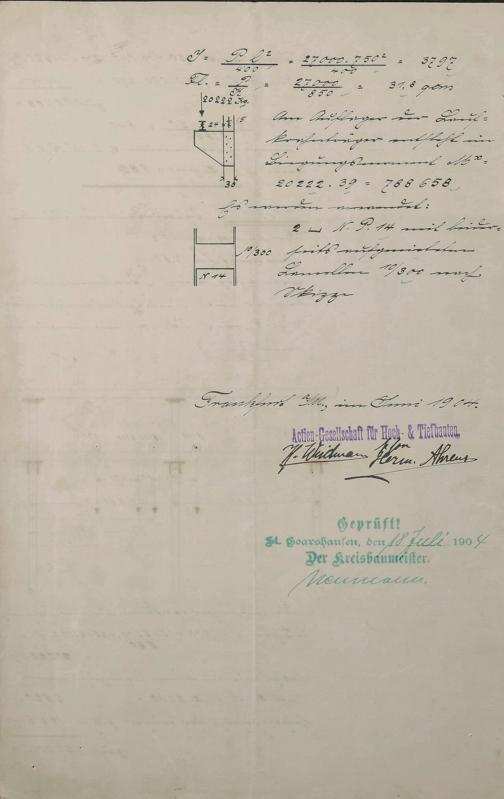 J = P·l² / 400 = 27000.750² / 400 = 3797
Fl. = P / = 27000 / 850 = 31,8 qcm
20222 Kg.
24
5
Am Auflager der
entsteht ein
Biegungsmoment M =
20222 . 39 = 788 658
38
Es werden verwendet:
2 N. P. 14 mit beider-
seits aufgenieteten
Lamellen 10/300 nach
Skizze
10/300
N 14
Frankfurt a/M., im Juni 1904.
Actien-Gesellschaft für Hoch- & Tiefbauten.
Herm. Ahrens
Geprüft!
St. Goarshausen, den 18 Juli 1904
Der Kreisbaumeister.
Neumann.